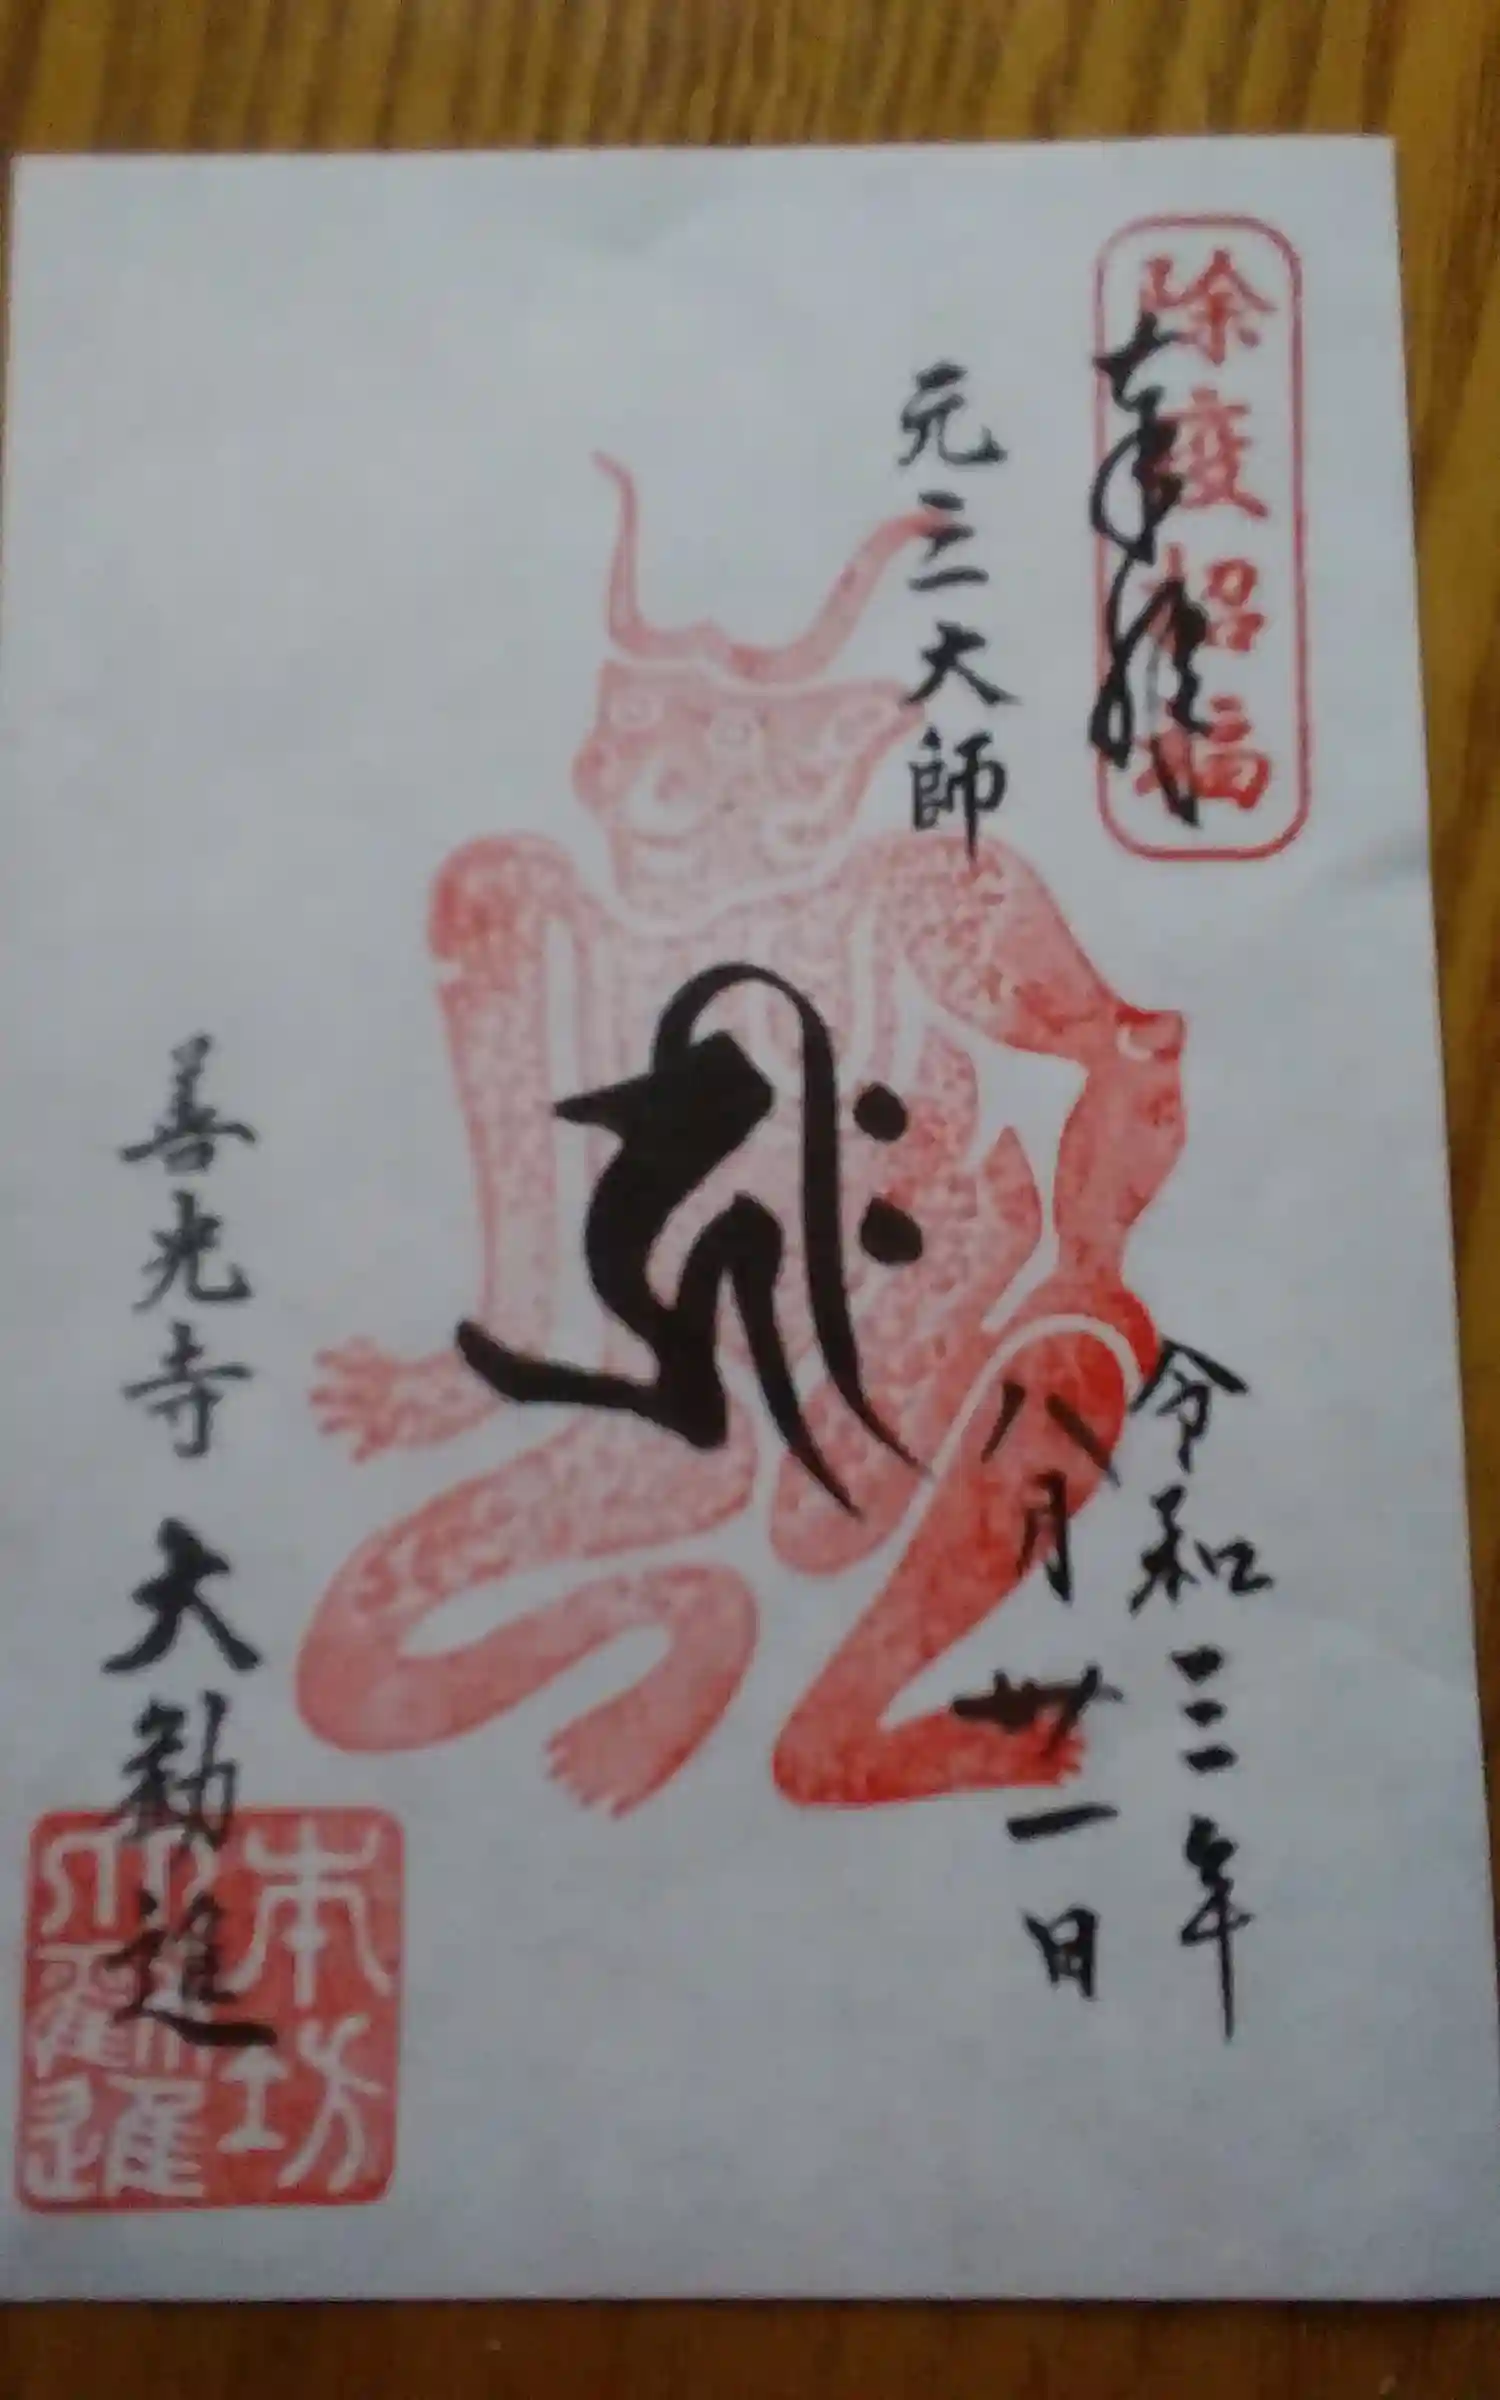 除疫招福
奉拝
元三大師
令和三年
八月卅一日
善光寺 大勧進
本坊
大勸進